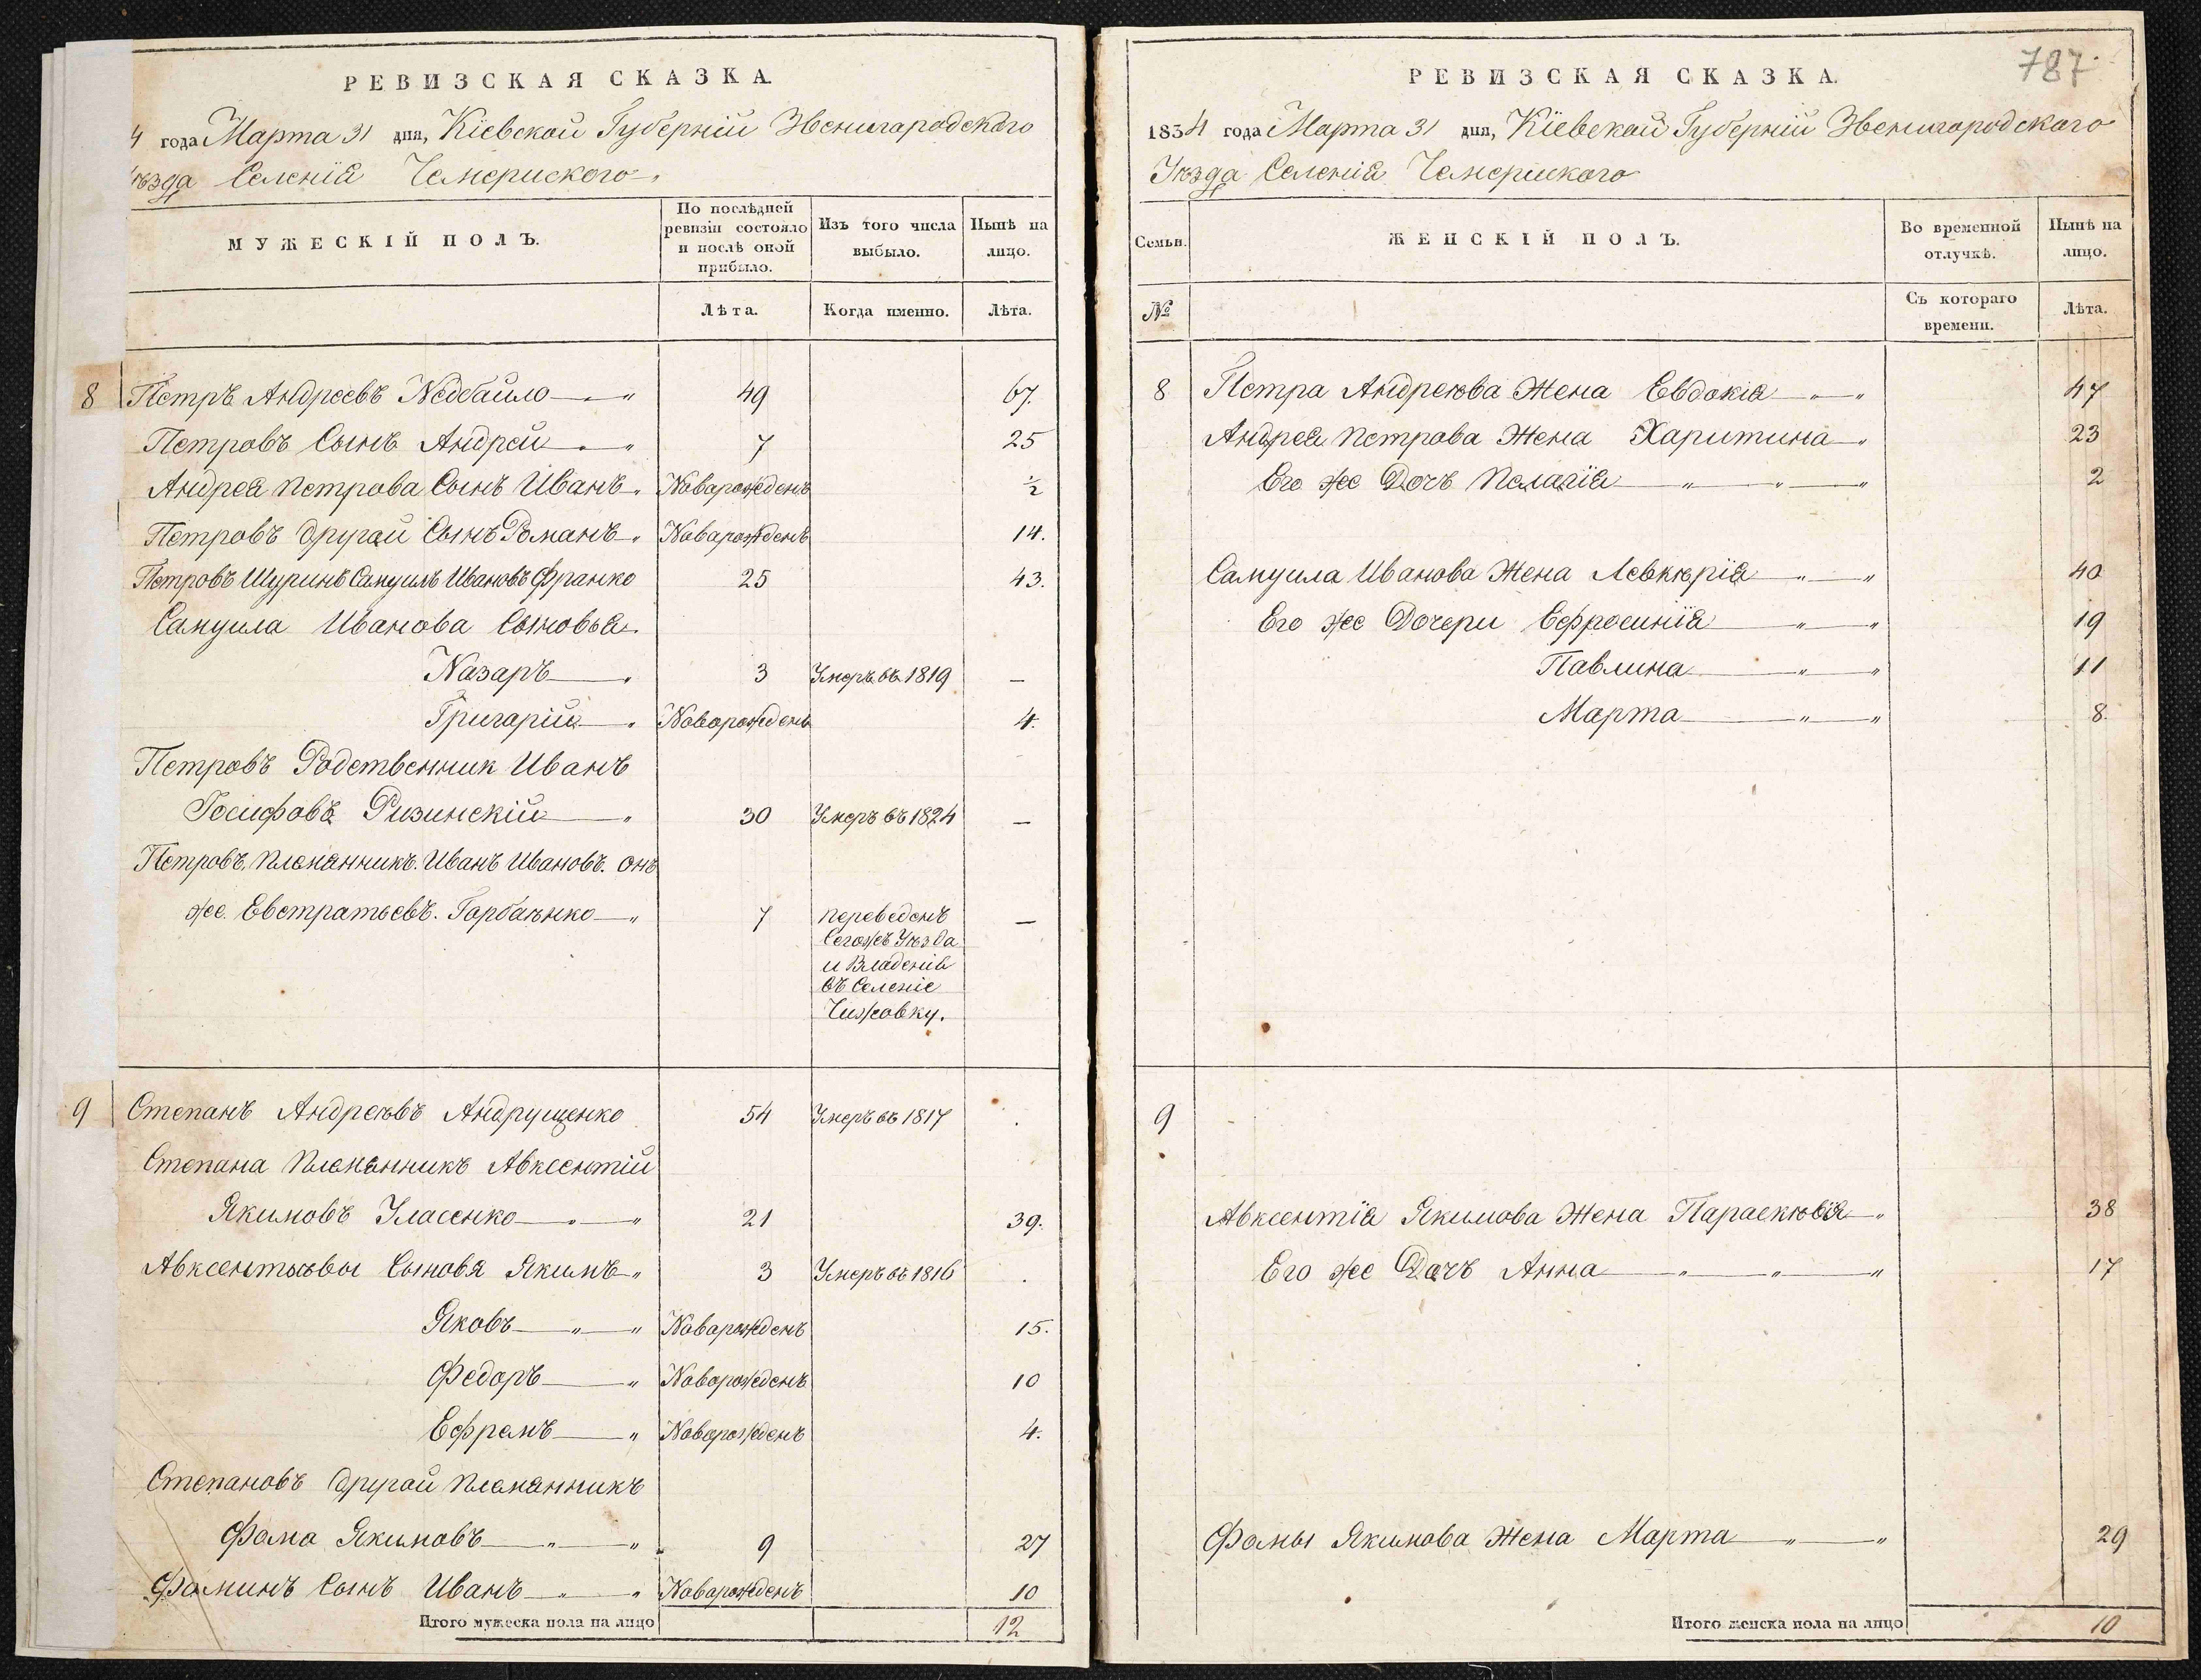 РЕВИЗСКАЯ СКАЗКА.
4 года Марта 31 дня, Кіевской Губерніи Звенигародскаго
ѣзда Селенія Чемериского
МУЖЕСКІЙ ПОЛЪ.
По послѣдней ревизіи состояло и послѣ оной прибыло.
Изъ того числа выбыло.
Нынѣ на лицо.
Лѣта.
Когда именно.
Лѣта.
8 Петръ Андреевъ Недбайло 49 67.
Петровъ Сынъ Андрей 7 25
Андрея Петрова Сынъ Иванъ Наварожденъ ½
Петровъ другай Сынъ Романъ Наварожденъ 14.
Петровъ Шуринъ Самуилъ Ивановъ Франко 25 43.
Самуила Иванова Сыновья
Назаръ 3 Умеръ въ 1819 —
Григарій Наварожденъ 4.
Петровъ Родственник Иванъ
Іосифовъ Ризинскій 30 Умеръ въ 1824 —
Петровъ Племянникъ Иванъ Ивановъ. онъ
же Евстратьевъ. Гарбаенко 7 переведенъ —
Сегожъ Уѣзда
и Владенія
въ Селеніе
Чижовку.
9 Степанъ Андреевъ Андрущенко 54 Умеръ въ 1817 .
Степана Племянникъ Авксентій
Якимовъ Уласенко 21 39.
Авксентьевы Сыновя Якимъ 3 Умеръ въ 1816 .
Яковъ Наварожденъ 15.
Федаръ Наварожденъ 10
Ефремъ Наварожденъ 4.
Степановъ другай Племянникъ
Фама Якимовъ 9 27
Фаминъ Сынъ Иванъ Наварожденъ 10
Итого мужеска пола на лицо 12
787.
РЕВИЗСКАЯ СКАЗКА.
1834 года Марта 31 дня, Кіевской Губерніи Звенигородскаго
Уѣзда Селенія Чемериского
Семьи.
ЖЕНСКІЙ ПОЛЪ.
Во временной отлучкѣ.
Нынѣ на лицо.
№
Съ котораго времени.
Лѣта.
8 Петра Андреева Жена Евдокія 47
Андрея Петрова Жена Харитина 23
Его же Дочъ Пелагія 2
Самуила Иванова Жена Левкерія 40
Его же Дочери Ефросинія 19
Павлина 11
Марта 8.
9
Авксентія Якимова Жена Параскевія 38
Его же Дачъ Анна 17
Фамы Якимова Жена Марта 29
Итого женска пола на лицо 10